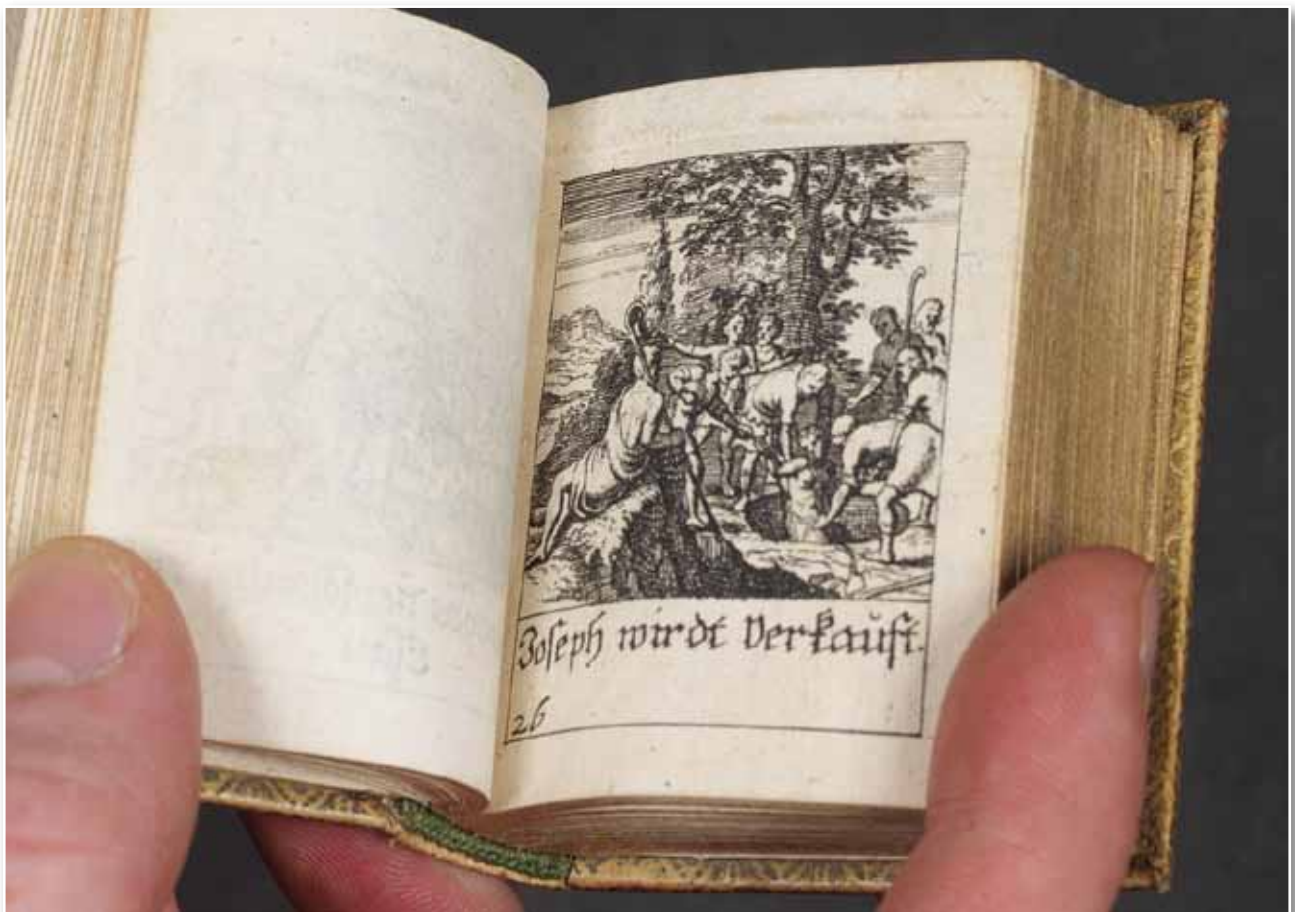 Joseph wirdt Verkaŭft.
26